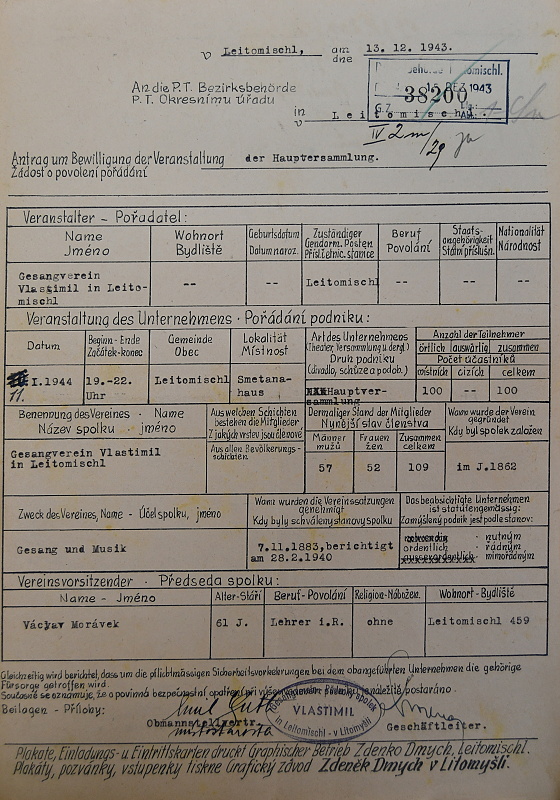 v Leitomischl, am 13. 12. 1943.
dne
An die P.T. Bezirksbehörde
P.T. Okresnímu Úřadu
in Leitomischl.
v
15 DEZ 1943
38200
G.Z.
IV 2m/29
Antrag um Bewilligung der Veranstaltung der Hauptersammlung.
Žádost o povolení pořádání
Veranstalter – Pořadatel:
Name Wohnort Geburtsdatum Zuständiger Beruf Staats- Nationalität
Jméno Bydliště Datum naroz. Gendarm. Posten Povolání angehörigkeit Národnost
Přísl. četnic. stanice Státní příslušn.
Gesangverein -- -- Leitomischl -- -- --
Vlastimil in Leito-
mischl
Veranstaltung des Unternehmens · Pořádání podniku:
Datum Beginn - Ende Gemeinde Lokalität Art des Unternehmens Anzahl der Teilnehmer
Začátek-konec Obec Místnost (Theater, Versammlung u. dergl.) örtlich auswärtig zusammen
Druh podniku Počet účastníků
(divadlo, schůze a podob.) místních cizích celkem
11. I.1944 19.-22. Leitomischl Smetana- Hauptver- 100 -- 100
Uhr haus sammlung
Benennung des Vereines - Name Aus welchen Schichten Dermaliger Stand der Mitglieder Wann wurde der Verein
Název spolku - jméno bestehen die Mitglieder Nynější stav členstva gegründet
Z jakých vrstev jsou členové Männer Frauen Zusammen Kdy byl spolek založen
mužů žen celkem
Gesangverein Vlastimil Aus allen Bevölkerungs- 57 52 109 im J.1862
in Leitomischl schichten
Zweck des Vereines, Name - Účel spolku, jméno Wann wurden die Vereinssatzungen Das beabsichtigte Unternehmen
genehmigt ist statutengemäss:
Kdy byly schváleny stanovy spolku Zamýšlený podnik jest podle stanov:
Gesang und Musik 7.11.1883, berichtigt notwendig - nutným
am 28.2.1940 ordentlich - řádným
ausserordentlich - mimořádným
Vereinsvorsitzender · Předseda spolku:
Name - Jméno Alter-Stáří Beruf-Povolání Religion-Nábožen. Wohnort-Bydliště
Václav Morávek 61 J. Lehrer i.R. ohne Leitomischl 459
Gleichzeitig wird berichtet, dass um die pflichtmässigen Sicherheitsvorkehrungen bei dem obangeführten Unternehmen die gehörige
Fürsorge getroffen wird.
Současně se oznamuje, že o povinná bezpečnostní opatření při výše uvedeném podniku náležitě postaráno.
Beilagen - Přílohy:
VLASTIMIL
in Leitomischl - v Litomyšli
Obmannstellvertr. Geschäftleiter.
místostarosta
Plakate, Einladungs- u. Eintrittskarten druckt Graphischer Betrieb Zdenko Dmych, Leitomischl.
Plakáty, pozvánky, vstupenky tiskne Grafický závod Zdeněk Dmych v Litomyšli.